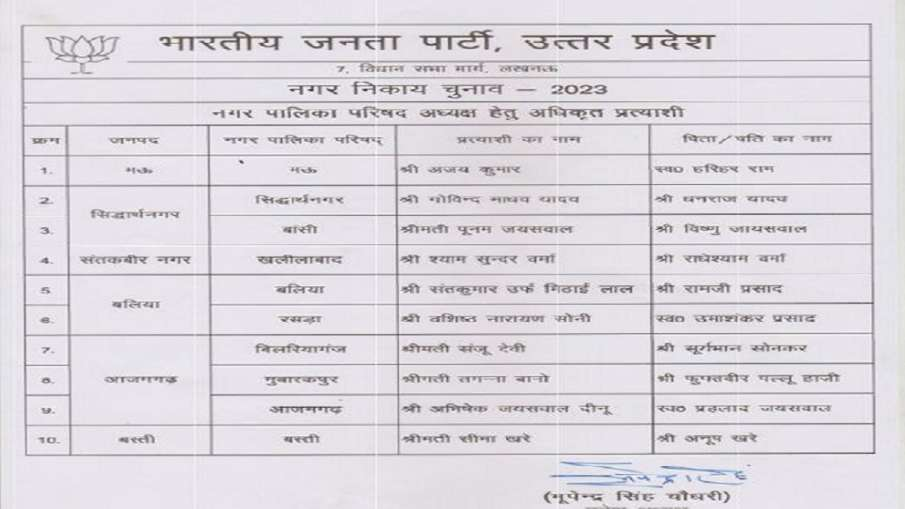 भारतीय जनता पार्टी, उत्तर प्रदेश
7, विधान सभा मार्ग, लखनऊ
नगर निकाय चुनाव – 2023
नगर पालिका परिषद अध्यक्ष हेतु अधिकृत प्रत्याशी
क्रम जनपद नगर पालिका परिषद् प्रत्याशी का नाम पिता/पति का नाम
1. मऊ मऊ श्री अजय कुमार स्व0 हरिहर राम
2. सिद्धार्थनगर सिद्धार्थनगर श्री गोविन्द माधव यादव श्री धनराज यादव
3. बांसी श्रीमती पूनम जयसवाल श्री विष्णु जायसवाल
4. संतकबीर नगर खलीलाबाद श्री श्याम सुन्दर वर्मा श्री राधेश्याम वर्मा
5. बलिया बलिया श्री संतकुमार उर्फ मिठाई लाल श्री रामजी प्रसाद
6. रसड़ा श्री वशिष्ठ नारायण सोनी स्व0 उमाशंकर प्रसाद
7. आजमगढ़ बिलरियागंज श्रीमती संजू देवी श्री सूर्यभान सोनकर
8. मुबारकपुर श्रीमती तमन्ना बानो श्री हाजी
9. आजमगढ़ श्री अभिषेक जयसवाल दीनू स्व0 प्रहलाद जयसवाल
10. बस्ती बस्ती श्रीमती सीमा खरे श्री अनूप खरे
(भूपेन्द्र सिंह चौधरी)